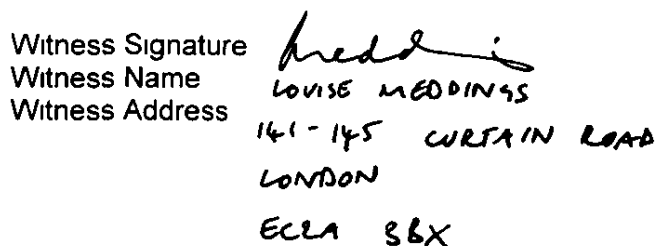 Witness Signature
Witness Name LOUISE MEDDINGS
Witness Address
141-145 CURTAIN ROAD
LONDON
EC2A 3BX